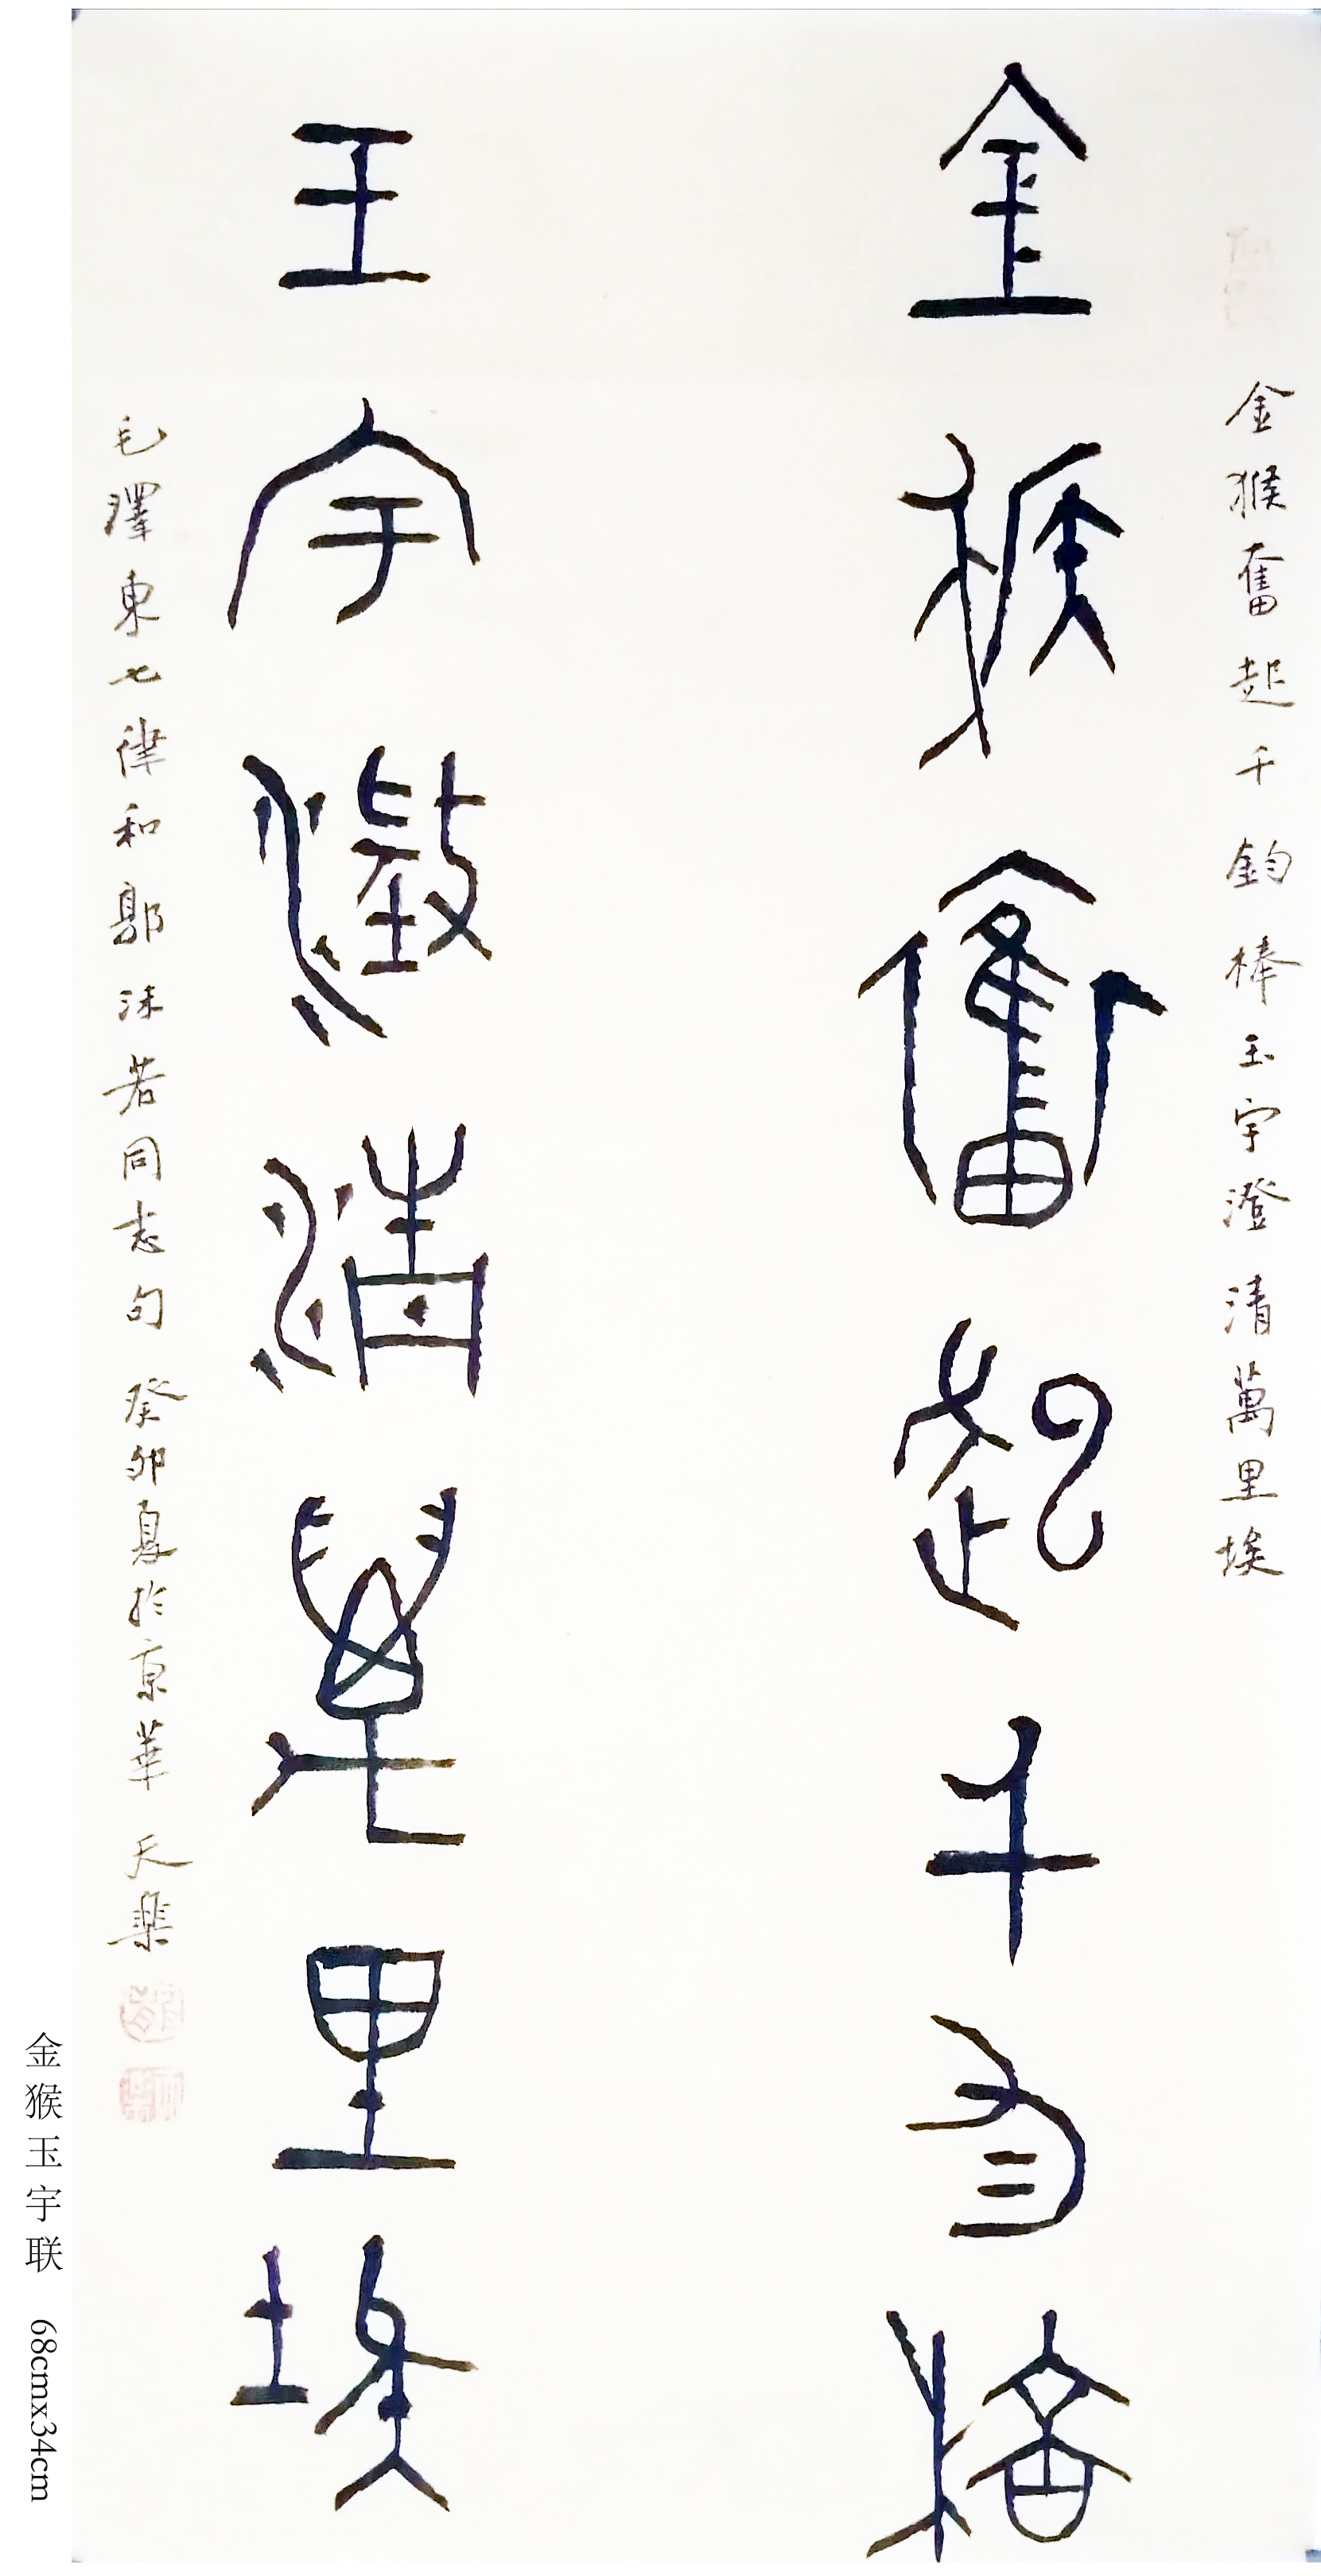 金猴奮起千鈞棒玉宇澄清萬里埃
金猴奮起千鈞棒
玉宇澄清萬里埃
毛澤東七律和郭沫若同志句 癸卯夏於京華 天樂
金猴玉宇联 68cmx34cm